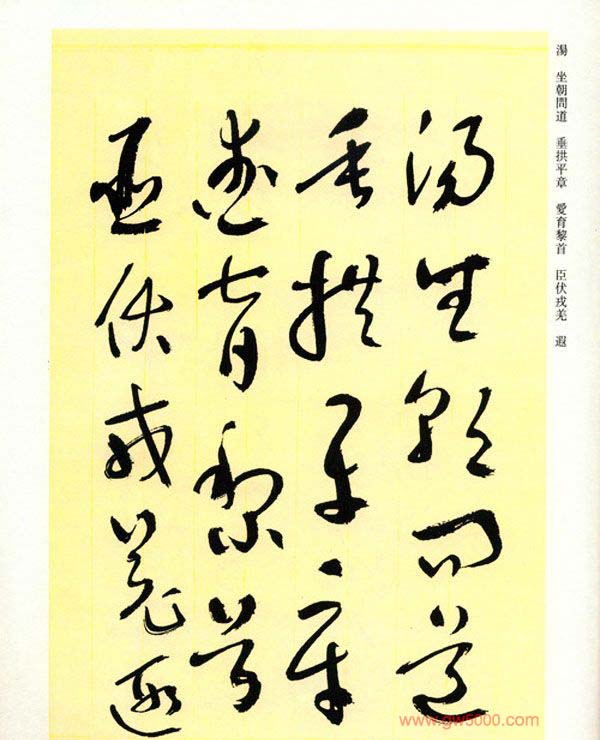 湯 坐朝問道 垂拱平章 愛育黎首 臣伏戎羌 遐
湯坐朝問道
垂拱平章
愛育黎首
臣伏戎羌遐
www.gw5000.com